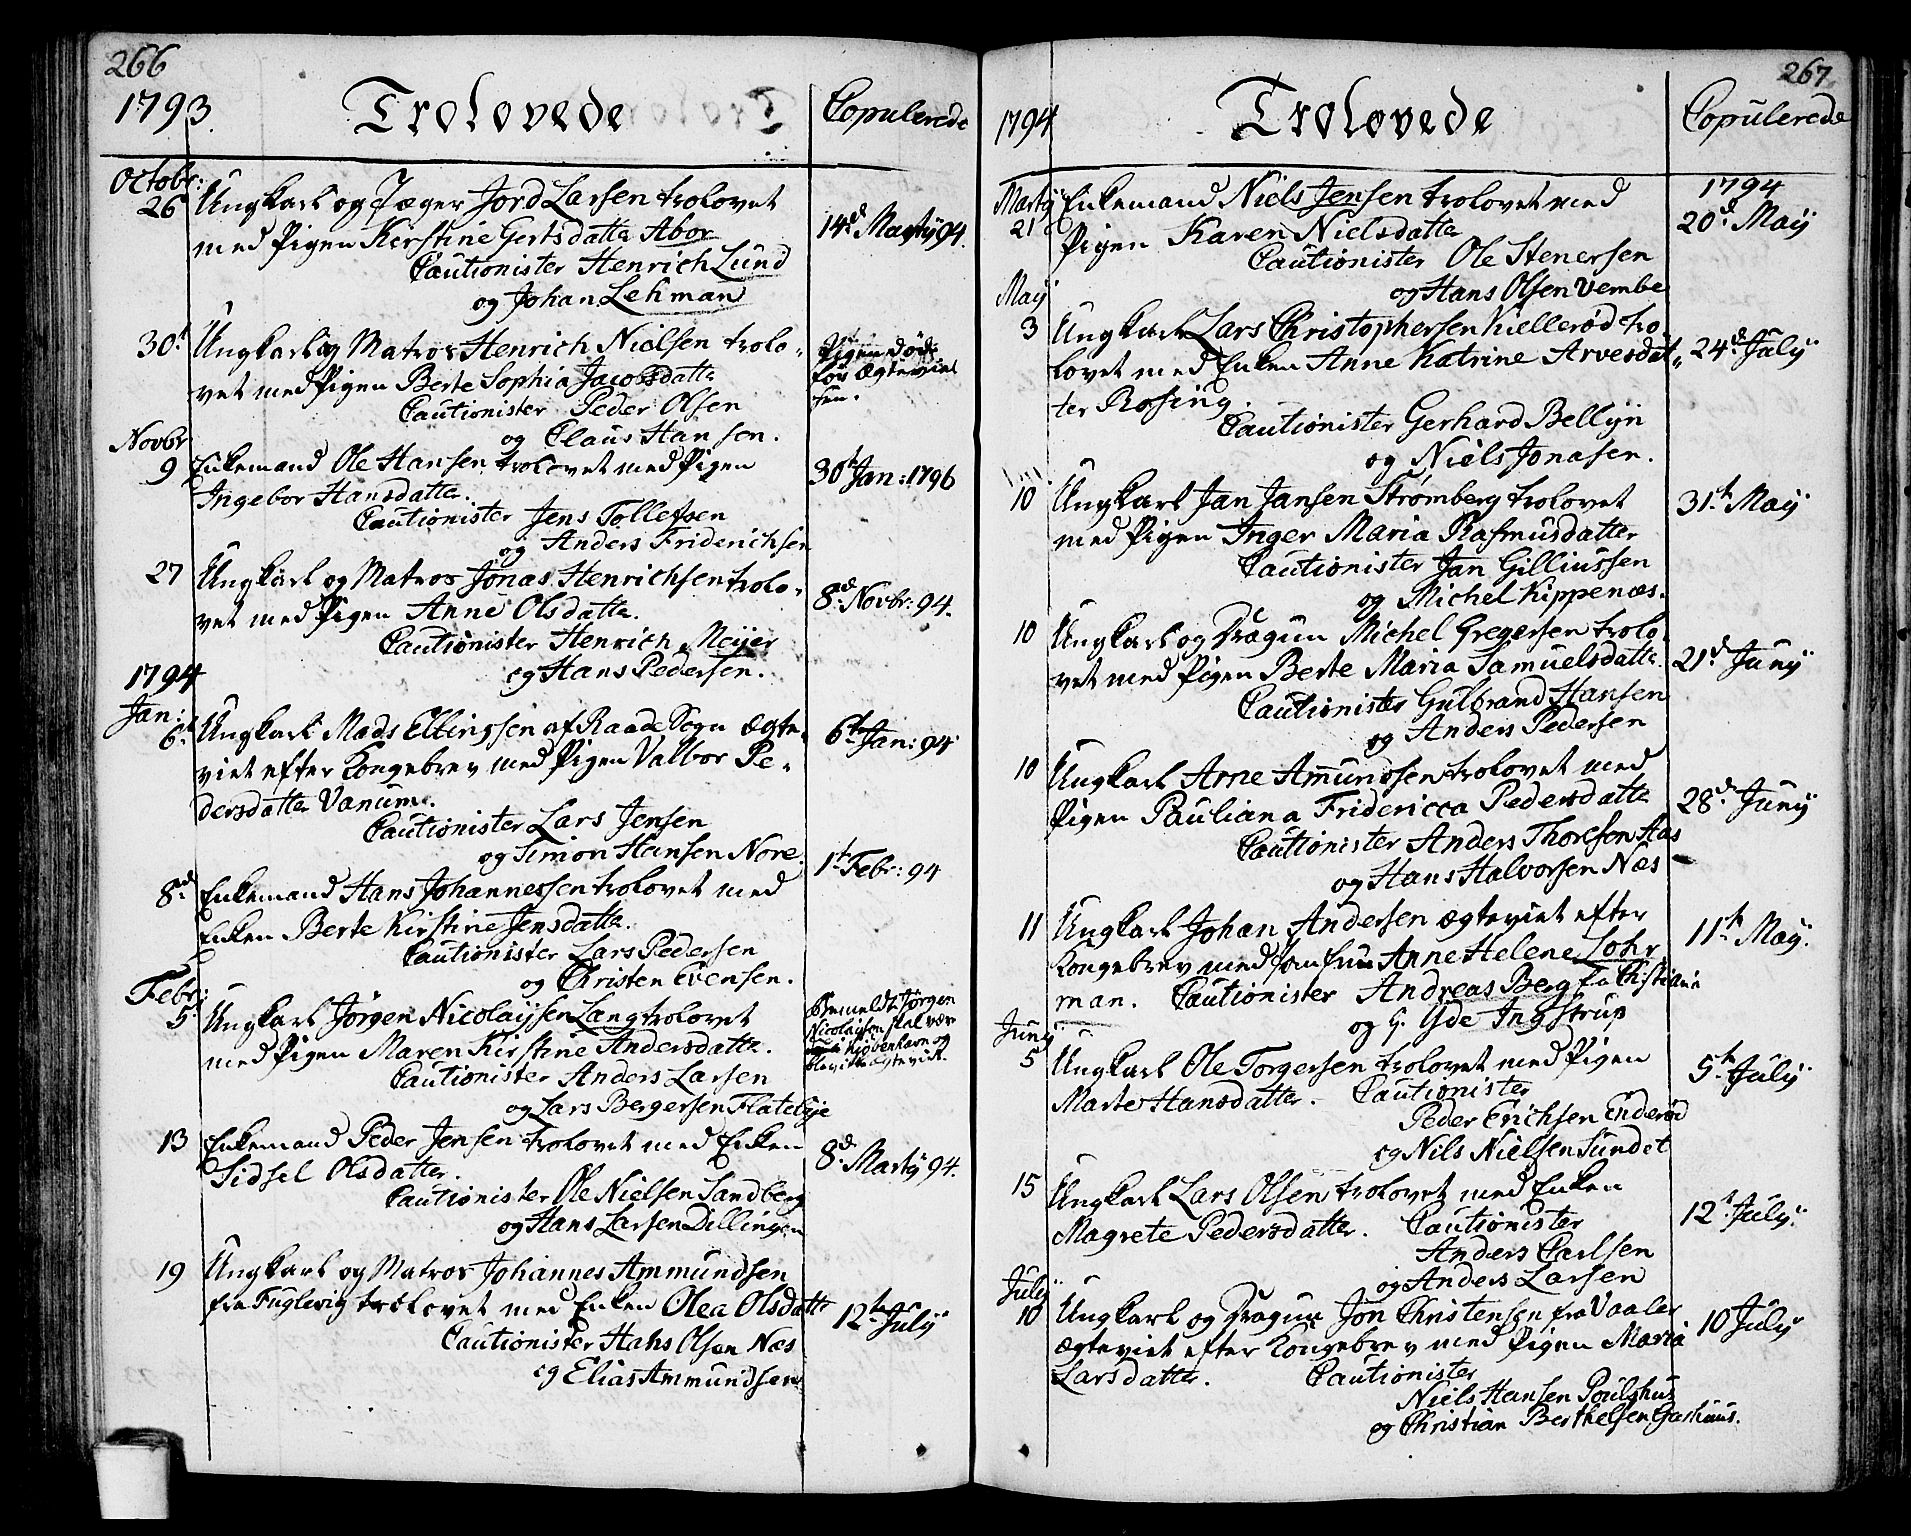 266
1793. Trolovede Copulerede
Octobr:
26 Ungkarl og Jæger Jord Larsen trolovet
med Pigen Kirstine Gertsdatter Abor 14d Martÿ 94.
Cautionister Henrich Lund
og Johan Lehman
30t Ungkarl og Matros Henrich Nielsen trolo-
vet med Pigen Berte Sophia Jacobsdatter
Pigen døde
før Ægteviel
sen.
Cautionister Peder Olsen
og Claus Hansen.
Novbr
9 Enkemand Ole Hansen trolovet med Pigen
Ingebor Hansdatter. 30t Jan: 1796
Cautionister Jens Tollefsen
og Anders Friderichsen
27 Ungkarl og Matros Jonas Henrichsen trolo-
vet med Pigen Anne Olsdatter. 8d Novbr: 94.
Cautionister Henrich Meijer
og Hans Pedersen.
1794
Jan:
6t Ungkarl Mads Ellingsen af Raade Sogn ægte-
viet efter Kongebrev med Pigen Valbor Pe- 6t Jan: 94
dersdatter Vanum.
Cautionister Lars Jensen
og Simon Hansen Nore.
8d Enkemand Hans Johannessen trolovet med 1t Febr: 94
Enken Berte Kirstine Jensdatter.
Cautionister Lars Pedersen
og Christen Evensen.
Febr:
5 Ungkarl Jørgen Nicolaijsen Lang trolovet
med Pigen Maren Kirstine Andersdatter.
Bemeldt Jørgen
Nicolaijsen skal være
i Kjøbenhavn og
blev ikke ægteviet.
Cautionister Anders Larsen
og Lars Bergersen Flatebye
13 Enkemand Peder Jensen trolovet med Enken
Sidsel Olsdatter. 8d Martÿ 94.
Cautionister Ole Nielsen Sandberg
og Hans Larsen Dillingen
19 Ungkarl og Matros Johannes Ammundsen
fra Fuglevig trolovet med Enken Olea Olsdatter 12t Julÿ
Cautionister Hans Olsen Næs
og Elias Ammundsen
267
1794 Trolovede Copulerede
Martÿ
21 Enkemand Niels Jensen trolovet med
Pigen Karen Nielsdatter
1794
20d Maÿ
Cautionister Ole Stenersen
og Hans Olsen Vembe
Maÿ
3 Ungkarl Lars Christophersen Kiellerød tro-
lovet med Enken Anne Katrine Arvesdat- 24d Julÿ
ter Rosing.
Cautionister Gerhard Bellijn
og Niels Jonasen.
10 Ungkarl Jan Jansen Strømberg trolovet 31t Maÿ
med Pigen Inger Maria Rasmusdatter
Cautionister Jan Gilliussen
og Michel Kippenæs.
10 Ungkarl og Dragun Michel Gregersen trolo-
vet med Pigen Berte Maria Samuelsdatter. 21d Junÿ
Cautionister Gulbrand Hansen
og Anders Pedersen
10 Ungkarl Arne Amundsen trolovet med
Pigen Pauliana Fridericca Pedersdatter 28d Junÿ
Cautionister Anders Thoresen Aas
og Hans Halvorsen Næs
11 Ungkarl Johan Andersen ægteviet efter
Kongebrev med Jomfrue Anne Helene Lohr 11t Maÿ.
man. Cautionister Andreas Berg fra Christiania
og G. Yde Ingstrup
Junÿ
5 Ungkarl Ole Torgersen trolovet med Pigen
Marte Hansdatter. Cautionister 5t Julÿ
Peder Erichsen Enderød
og Nils Nielsen Sundet
15 Ungkarl Lars Olsen trolovet med Enken
Magrete Pedersdatter. Cautionister 12t Julÿ.
Anders Carlsen
og Anders Larsen
Julÿ
10 Ungkarl og Dragun Jon Christensen fra Vaaler
ægteviet efter Kongebrev med Pigen Maria 10 Julÿ
Larsdatter. Cautionister
Niels Hansen Poulshus
og Christian Berthelsen Gashuus.